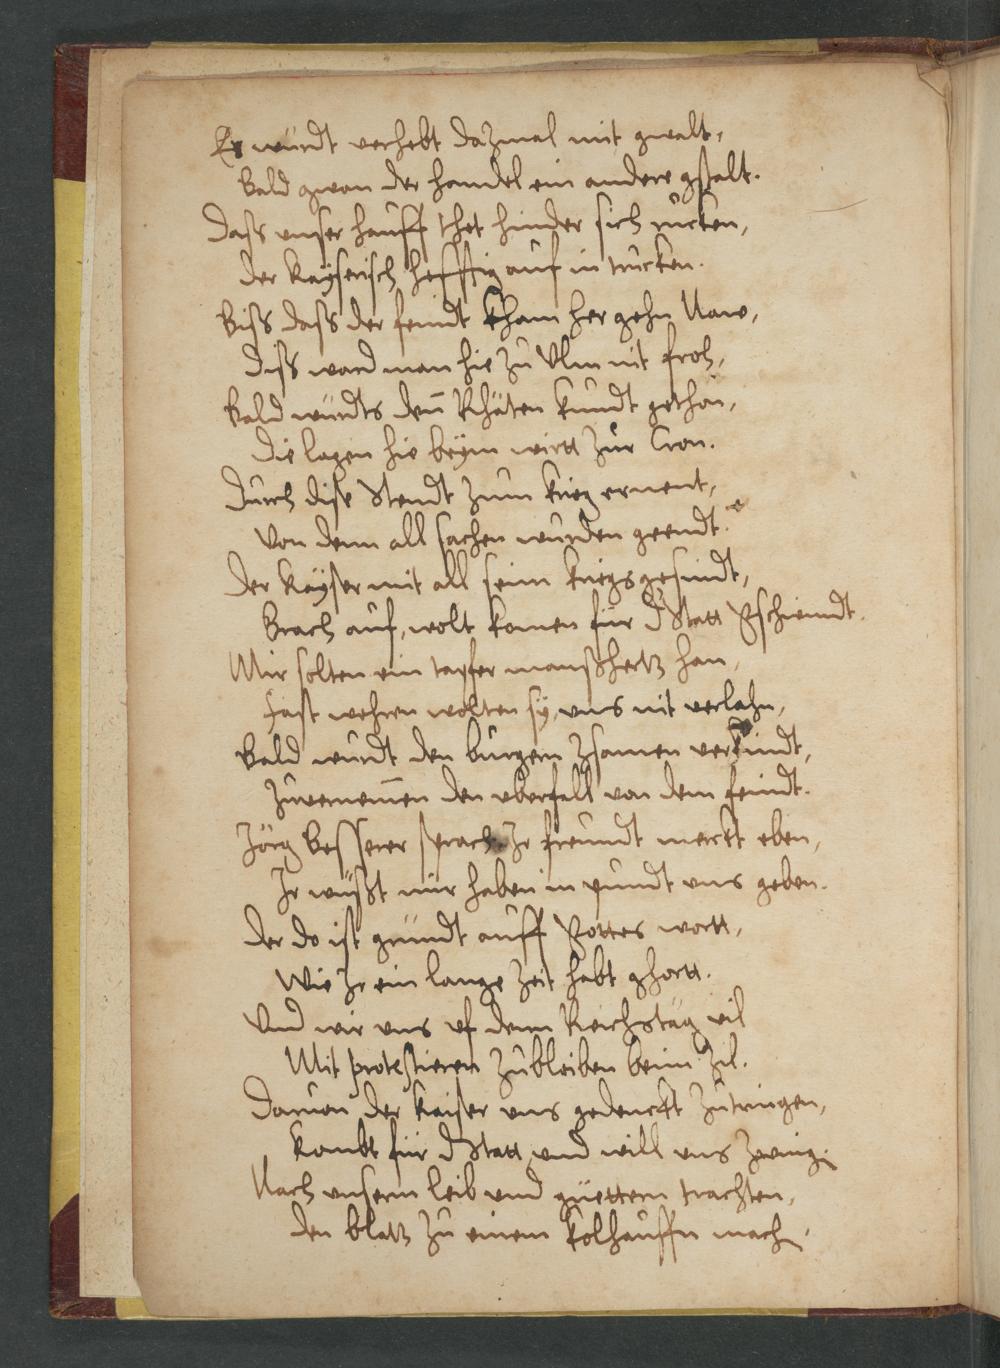 Es würdt verhebt dazmal mit gwalt,
Bald gwan der handel ein andere gstalt.
Dass unser hauff thet hinder sich rucken,
der Kayserisch hefftig auf in trucken.
Biss dass der feindt kham her gehn Naw,
diss ward man hie zu Ulm nit froh,
Bald würdts den Rhäten kundt gethon,
die lagen hie beym wirtt zur Cron.
Durch dise Stendt zum krieg ernent,
Von denn all sachen wurden geendt.
Der Kayser mit all seim kriegsgesindt,
Brach auf, wolt komen für d Statt gschwindt.
Mir solten ein tapfer manßhertz han,
fast wehren wolten sy, uns nit verlahn,
Bald wurdt den burgern zsamen verkindt,
zuvernemen den uberfall von dem feindt.
Jörg Besserer sprach Ir freundt merckt eben,
Ir wüßt mir haben in pundt uns geben.
Der do ist gründt auff Gottes wortt,
Wie Ir ein lange Zeit habt ghortt.
Und wir uns uf denn Reichstäg vil
Mit protestieren zubleiben beim Zil.
Daruon der Kaiser uns gedenckt zutringen,
kombt für d Statt und will uns zwing.
Nach unserm leib und güettern trachten,
den blatz zu einem kolhauffn mach.